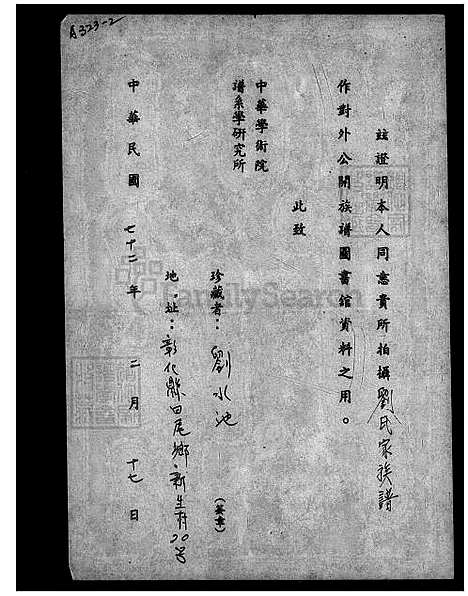 A323-2
茲證明本人同意貴所拍攝劉氏家族譜
作對外公開族譜圖書館資料之用。
此致
中華學術院
譜系學研究所
珍藏者：劉水池（簽章）
地址：彰化縣田尾鄉新生村20号
中華民國七十二年二月十七日
FamilySearch